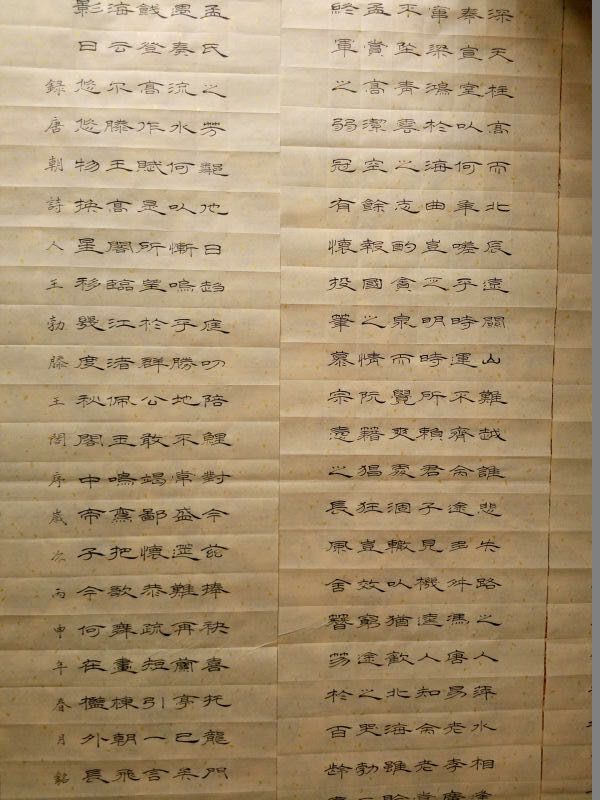 深天柱高而北辰遠關山難越誰悲失路之人萍水相逢
奉宣室以何年嗟乎時運不齊命途多舛馮唐易老李廣
竄梁鴻於海曲豈乏明時所賴君子見機達人知命老當
不墜青雲之志酌貪泉而覺爽處涸轍以猶歡北海雖賒
孟嘗高潔空餘報國之情阮籍猖狂豈效窮途之哭勃
終軍之弱冠有懷投筆慕宗愨之長風舍簪笏於百齡
孟氏之芳鄰他日趨庭叨陪鯉對今茲捧袂喜托龍門
遇奏流水何以慚嗚乎勝地不常盛筵難再蘭亭已矣
餞登高作賦是所望於群公敢竭鄙懷恭疏短引一言
海云尔滕王高閣臨江渚佩玉鳴鸞把歌舞畫棟朝飛
影日悠悠物換星移幾度秋閣中帝子今何在檻外長
錄唐朝詩人王勃滕王閣序歲次丙申年春月銘